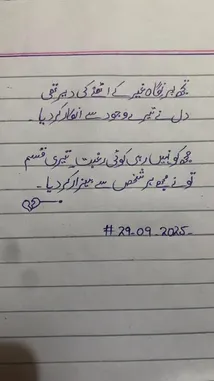 تجھ پر نگاہ غیر کے اٹھنے کی دیر تھی
دل نے تیرے وجود سے انکار کر دیا۔
مجھ کو نہیں رہی کوئی رغبت تیری قسم
تو نے مجھ ہر شخص سے بیزار کر دیا۔
# 29-09-2025-